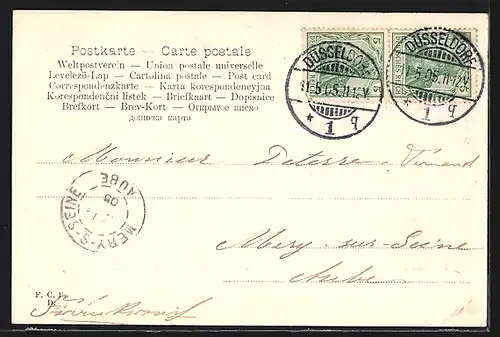 Postkarte — Carte postale
Weltpostverein — Union postale universelle
Levelező-Lap — Cartolina postale — Post card
Correspondenzkarte — Karta korespondencyjna
Korespondenční listek — Briefkaart — Dopisnice
Brefkort — Brev-Kort — Открытое письмо
дописна карта
DÜSSELDORF
5.05.11-12V
* 1 q
DÜSSELDORF
5.05.11-12V
* 1 q
5
5
Monsieur Deterre
Mery-sur-Seine
Aube
MERY-S-SEINE
AUBE
05
F. C. F.